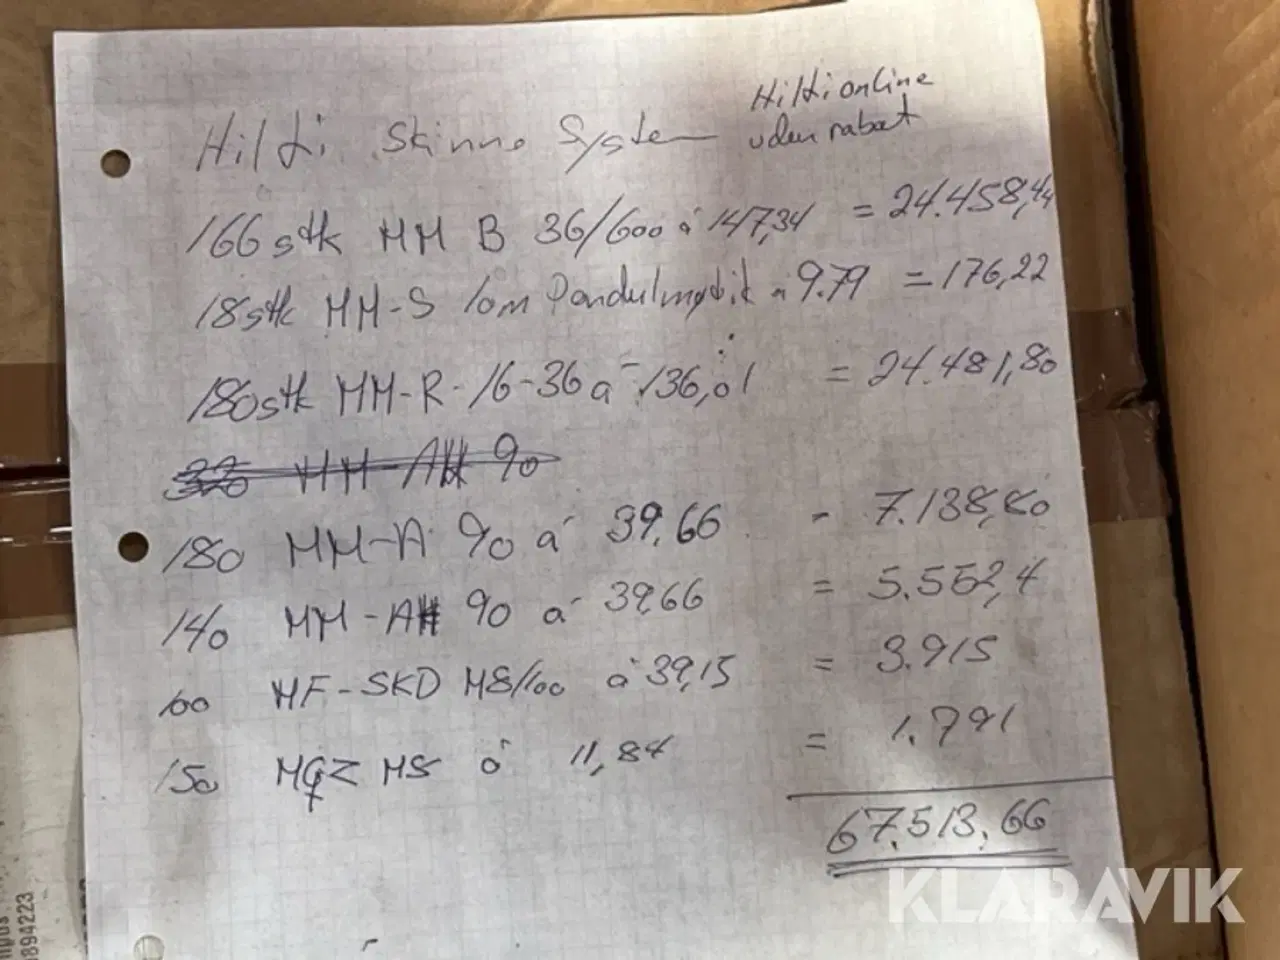 Hilti Skinne System
Hilti online
uden rabat
166 stk MM B 36/600 á 147,34 = 24.458,44
18 stk MM-S 10m Pendulingstik á 9.79 = 176,22
180 stk MM-R-16-36 á 136,01 = 24.481,80
320 MM-AH 90
180 MM-A 90 á 39,66 - 7.138,80
140 MM-AH 90 á 39,66 = 5.552,4
100 MF-SKD M8/100 á 39,15 = 3.915
150 MQZ M8 á 11,84 = 1.791
67.513,66
KLARAVIK
894223